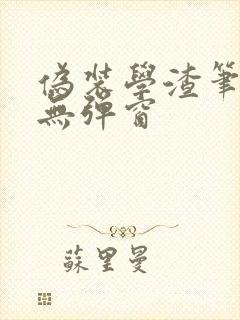 偽裝學渣筆
無彈窗
蘇里曼